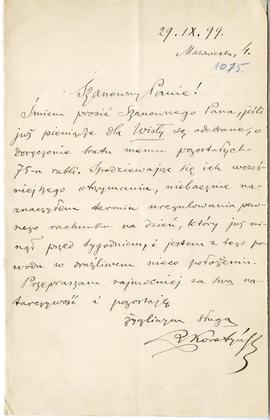 29. IX. 99.
Mazowiecka, 4.
1075.
Szanowny Panie!
Śmiem prosić Szanownego Pana, jeśli
już pieniądze dla Wisły są odebrane, o
doręczenie bratu memu pozostałych
75-u rubli. Spodziewając się ich wcześ-
niejszego otrzymania, niebacznie na-
znaczyłem termin uregulowania pew-
nego rachunku na dzień, który już mi-
nął przed tygodniem, i jestem z tego po-
wodu w drażliwem nieco położeniu.
Przepraszam najmocniej za swą na-
tarczywość i pozostaję
życzliwym sługą